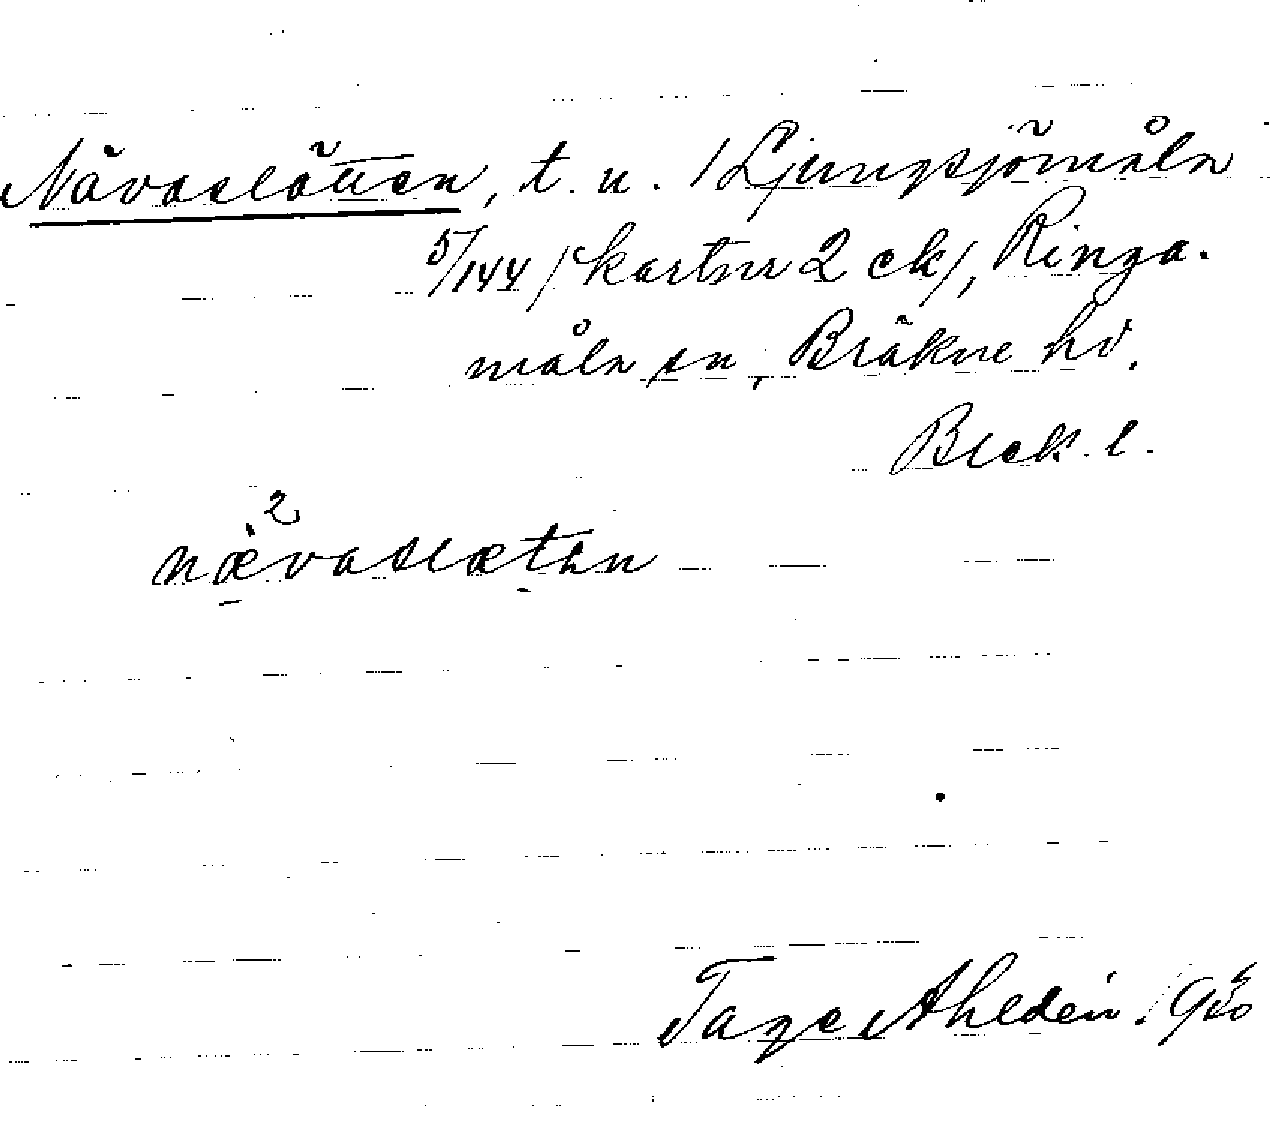 Nävaslätten, t. u. /Ljungsjömåla
5/144 /kartnr 2 ek/, Ringa-
måla sn, Bräkne hd.
Blek. l.
nævaslætən
Tage Ahldén.